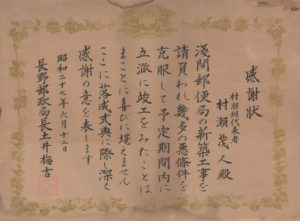 感謝状
村瀬組代表者
村瀬茂人殿
浅間郵便局の新築工事を
請負われ幾多の悪條件を
克服して予定期間内に
立派に竣工をみたことは
まことに喜びに堪えません
ここに落成式典に際し深く
感謝の意を表します
昭和二十七年六月十二日
長野郵政局長土井梅吉